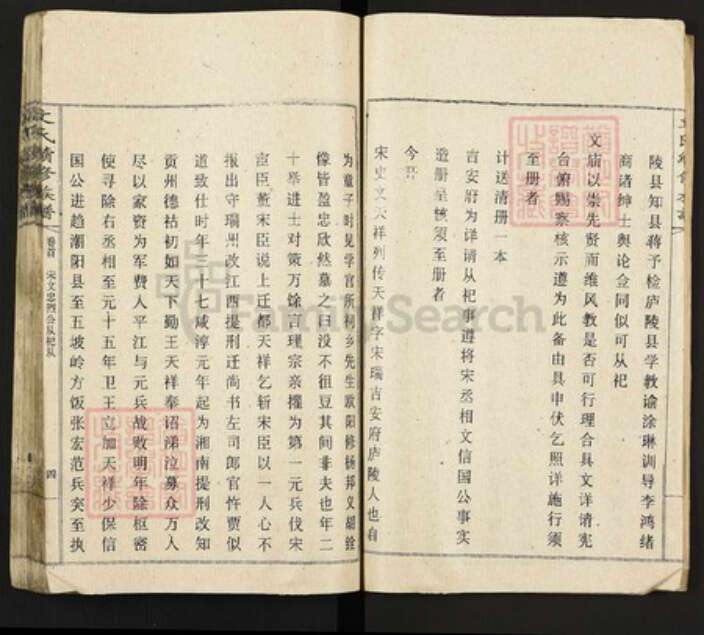 陵县知县蒋予检庐陵县学教谕涂琳训导李鸿绪
商诸绅士舆论佥同似可从祀
文庙以崇先贤而维风教是否可行理合具文详请宪
台俯赐察核示遵为此备由具申伏乞照详施行须
至册者
计送清册一本
吉安府为详请从祀事遵将宋丞相文信国公事实
造册呈核须至册者
今开
宋史文天祥列传天祥字宋瑞吉安府庐陵人也自
为童子时见学宫所祠乡先生欧阳修杨邦义胡铨
像皆盈忠欣然慕之曰没不徂豆其间非夫也年二
十举进士对策万馀言理宗亲擢为第一元兵伐宋
宦臣董宋臣说上迁都天祥乞斩宋臣以一人心不
报出守瑞州改江西提刑迁尚书左司郎官忤贾似
道致仕时年三十七咸淳元年起为湘南提刑改知
贡州德祜初如天下勤王天祥奉诏涕泣募众万人
尽以家资为军费人平江与元兵战败明年除枢密
使寻除右丞相至元十五年卫王立加天祥少保信
国公进趋潮阳县至五坡岭方饭张宏范兵突至执
文氏续修族谱
卷首
宋文忠烈公从祀从
四
FamilySearch